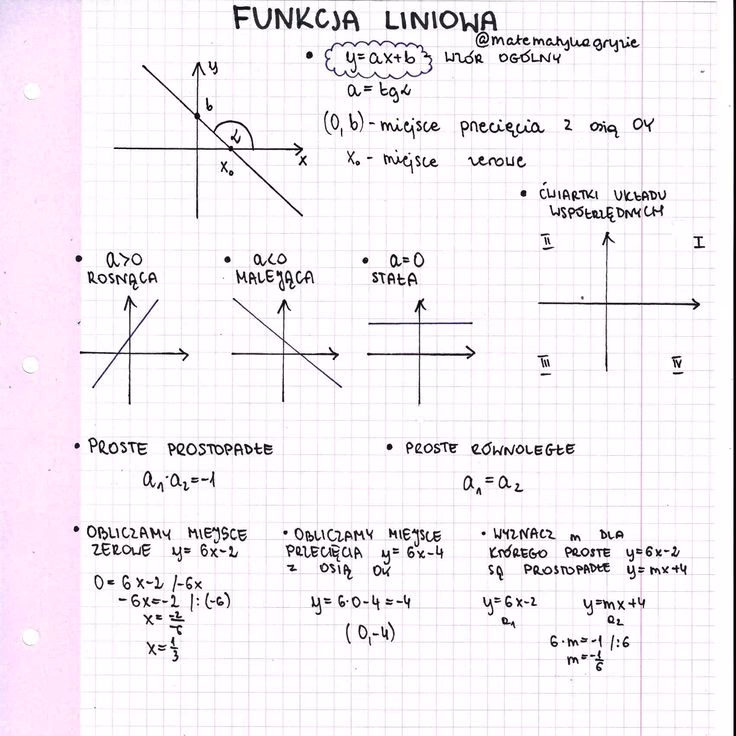 FUNKCJA LINIOWA
@matematykagryzie
• y=ax+b WZÓR OGÓLNY
a = tgα
(0, b) - miejsce precięcia z osią OY
x₀ - miejsce zerowe
y
b
α
x₀
x
• ĆWIARTKI UKŁADU
WSPÓŁRZĘDNYCH
II
I
III
IV
• a>0
ROSNĄCA
• a<0
MALEJĄCA
• a=0
STAŁA
• PROSTE PROSTOPADŁE
a₁·a₂=-1
• PROSTE RÓWNOLEGŁE
a₁=a₂
• OBLICZAMY MIEJSCE
ZEROWE y=6x-2
0=6x-2 /-6x
-6x=-2 /:(-6)
x=-2/-6
x=1/3
• OBLICZAMY MIEJSCE
PRZECIĘCIA y=6x-4
Z OSIĄ OY
y=6·0-4=-4
(0,-4)
• WYZNACZ m DLA
KTÓREGO PROSTE y=6x-2
SĄ PROSTOPADŁE y=mx+4
y=6x-2 y=mx+4
a₁ a₂
6·m=-1 /:6
m=-1/6